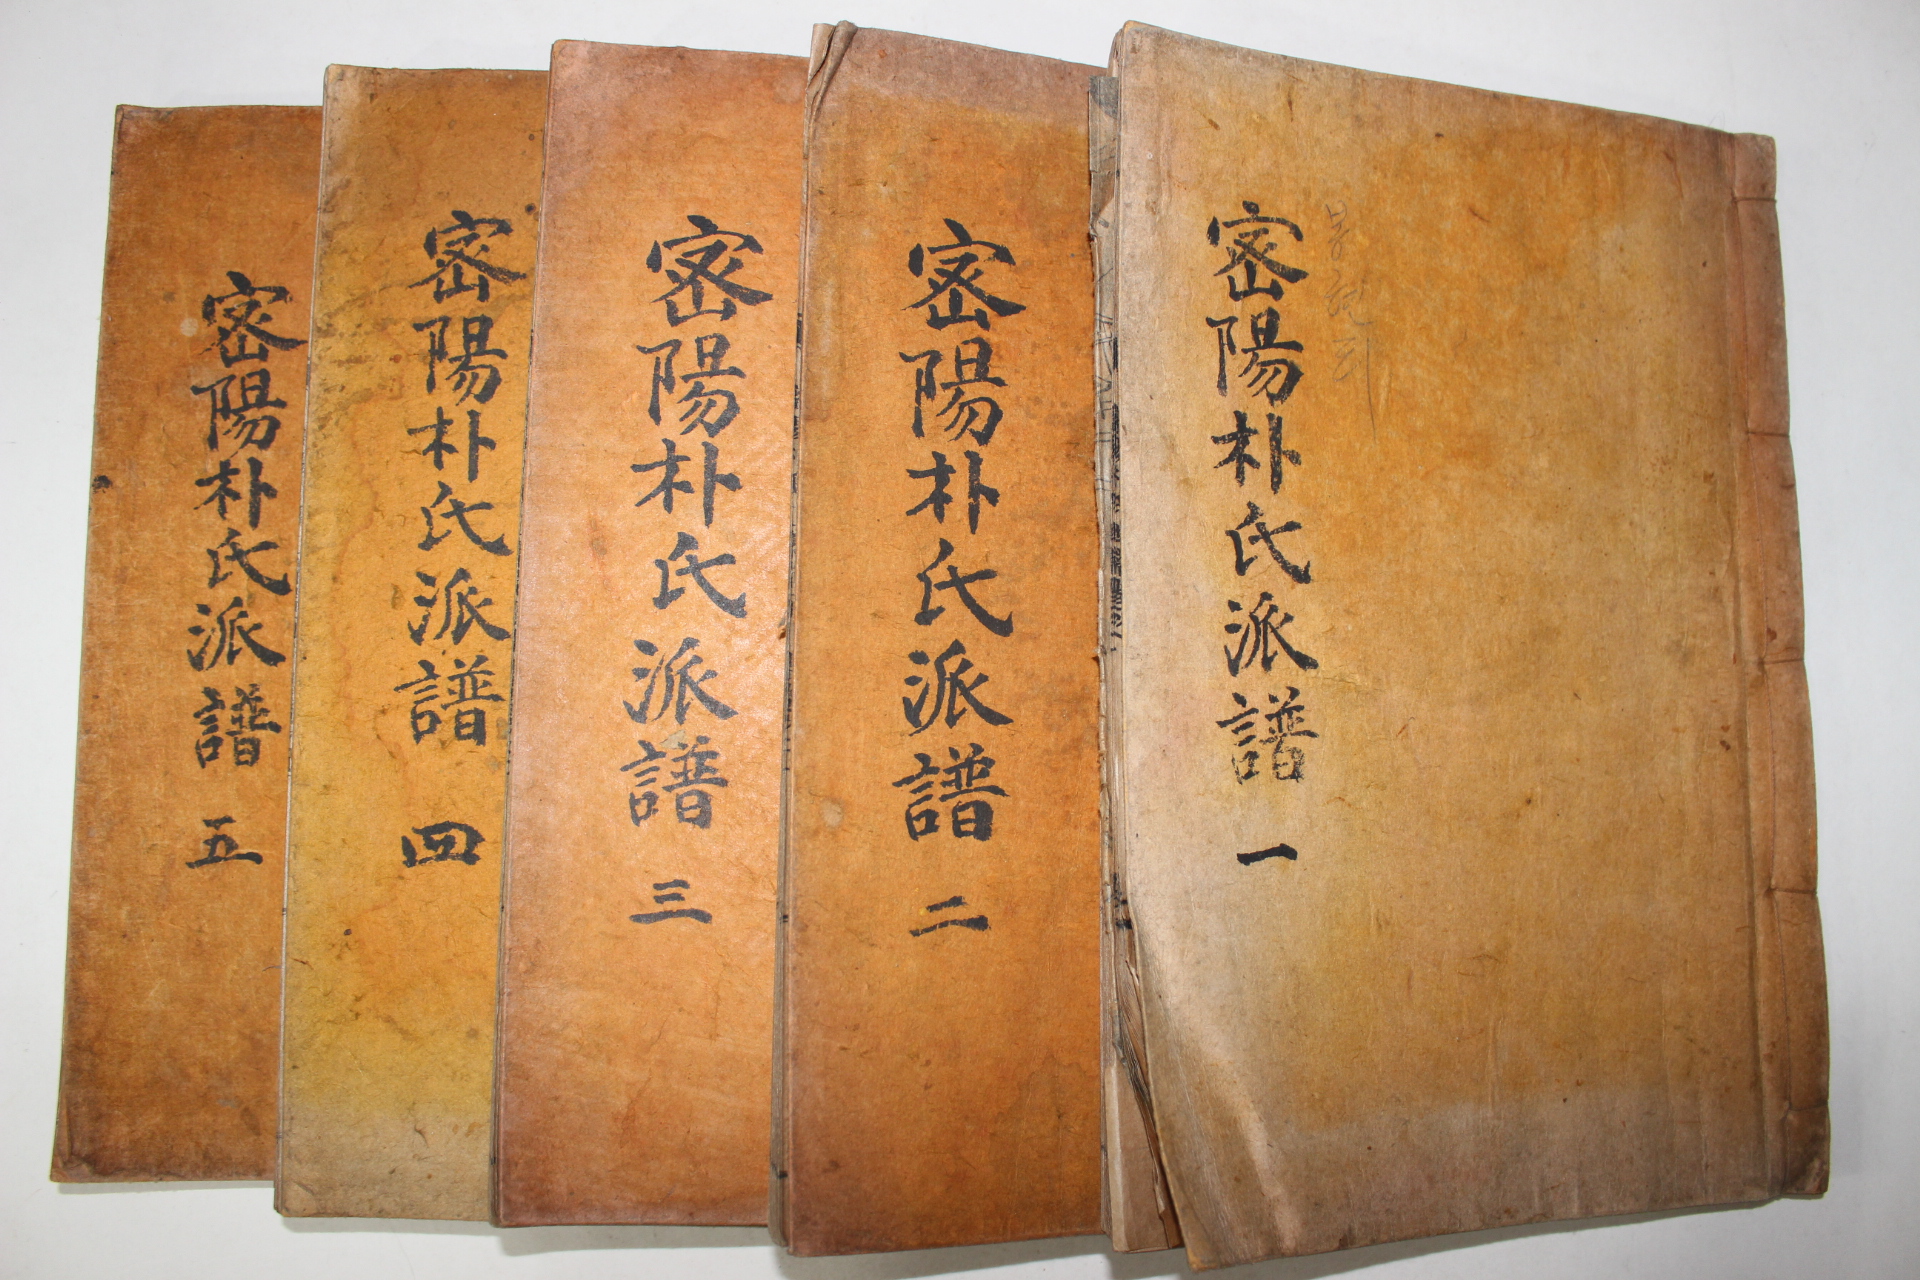 密陽朴氏派譜 一
密陽朴氏派譜 二
密陽朴氏派譜 三
密陽朴氏派譜 四
密陽朴氏派譜 五